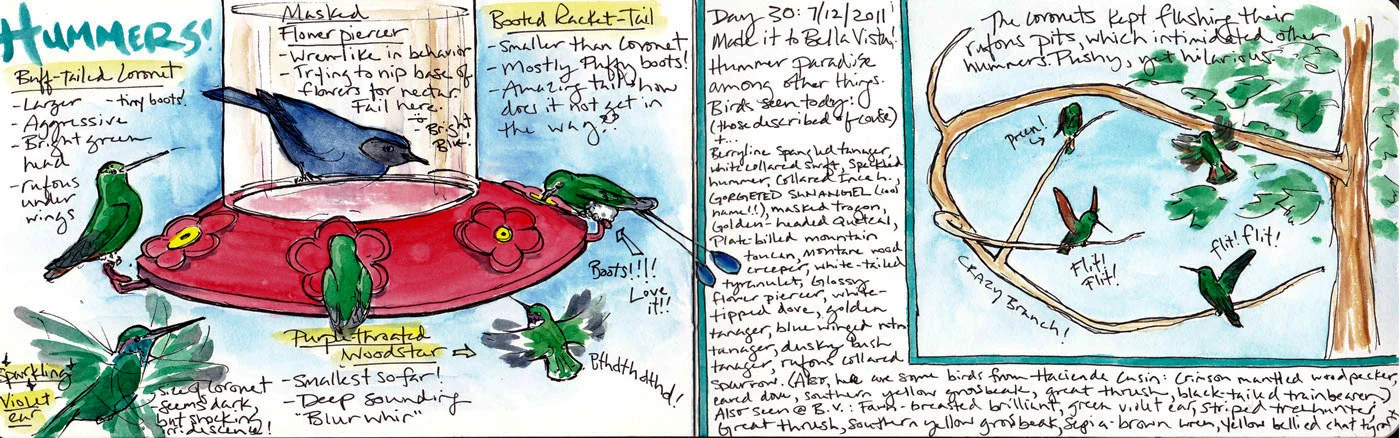 HUMMERS!
Buff-tailed Coronet
- Larger - tiny boots!
- Aggressive
- Bright green
head
- rufous
under
wings
Masked
Flowerpiercer
- Wrenlike in behavior
- Trying to nip base of
flowers for nectar
Fail here.
- Bright
Blue!
Booted Racket-Tail
- Smaller than Coronet
- Mostly Puffy boots!
- Amazing tail & how
does it not get in
the way??
Boots!!!!
Love
it!!
Sparkling
Violet
ear
size of coronet
seems dark,
but shocking
iridescence!
Purple-throated
Woodstar
- Smallest so far!
- Deep sounding
"Blur whir"
Bthdthdthd!
Day 30: 7/12/2011
Made it to Bella Vista!
Hummer paradise
among other things.
Birds seen today:
(those described of course)
+...
Berryline Spangled tanager,
White collared swift, Speckled
hummer, Collared Inca h.,
GORGETED SUNANGEL (cool
name!!), masked trogon,
Golden-headed Quetzal,
Plate-billed mountain
toucan, Montane wood
creeper, white-tailed
tyranulet, Glossy
flower piercer, white-
tipped dove, golden
tanager, blue winged mtn
tanager, dusky bush
tanager, rufous collared
sparrow. (Also, here are some birds from Haciende Cusin: Crimson mantled woodpecker,
eared dove, southern yellow grosbeak, great thrush, black-tailed trainbearer.)
Also seen @ B.V.: Fawn-breasted brilliant, green violet ear, striped treehunter,
Great thrush, Southern yellow grosbeak, Sepia-brown wren, Yellow bellied chat tyrant
The coronets kept flashing their
rufous pits, which intimidated other
hummers. Pushy, yet hilarious.
Preen!
Flit!
Flit!
flit! flit!
CRAZY Branch!